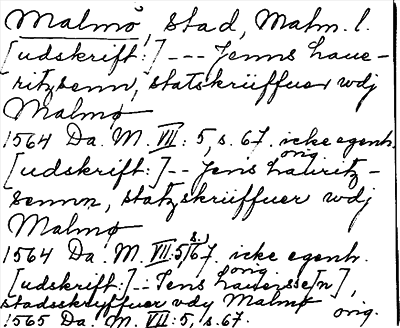 Malmö, stad, Malm. l.
[udskrift:] --- Jenns Laue-
ritzsenn, statskriiffuer wdj
Malmø
1564 Da. M. VII: 5, s. 67. icke egenh.
orig.
[udskrift:] -- Jens Lauritz-
sennn, statzskriiffuer wdj
Malmø
1564 Da. M. VII: 5, s. 67. icke egenh.
orig.
[udskrift:] -- Jens Lauersse[n],
stadsskryffuer vdy Malmø
1565 Da. M. VII: 5, s. 67. orig.